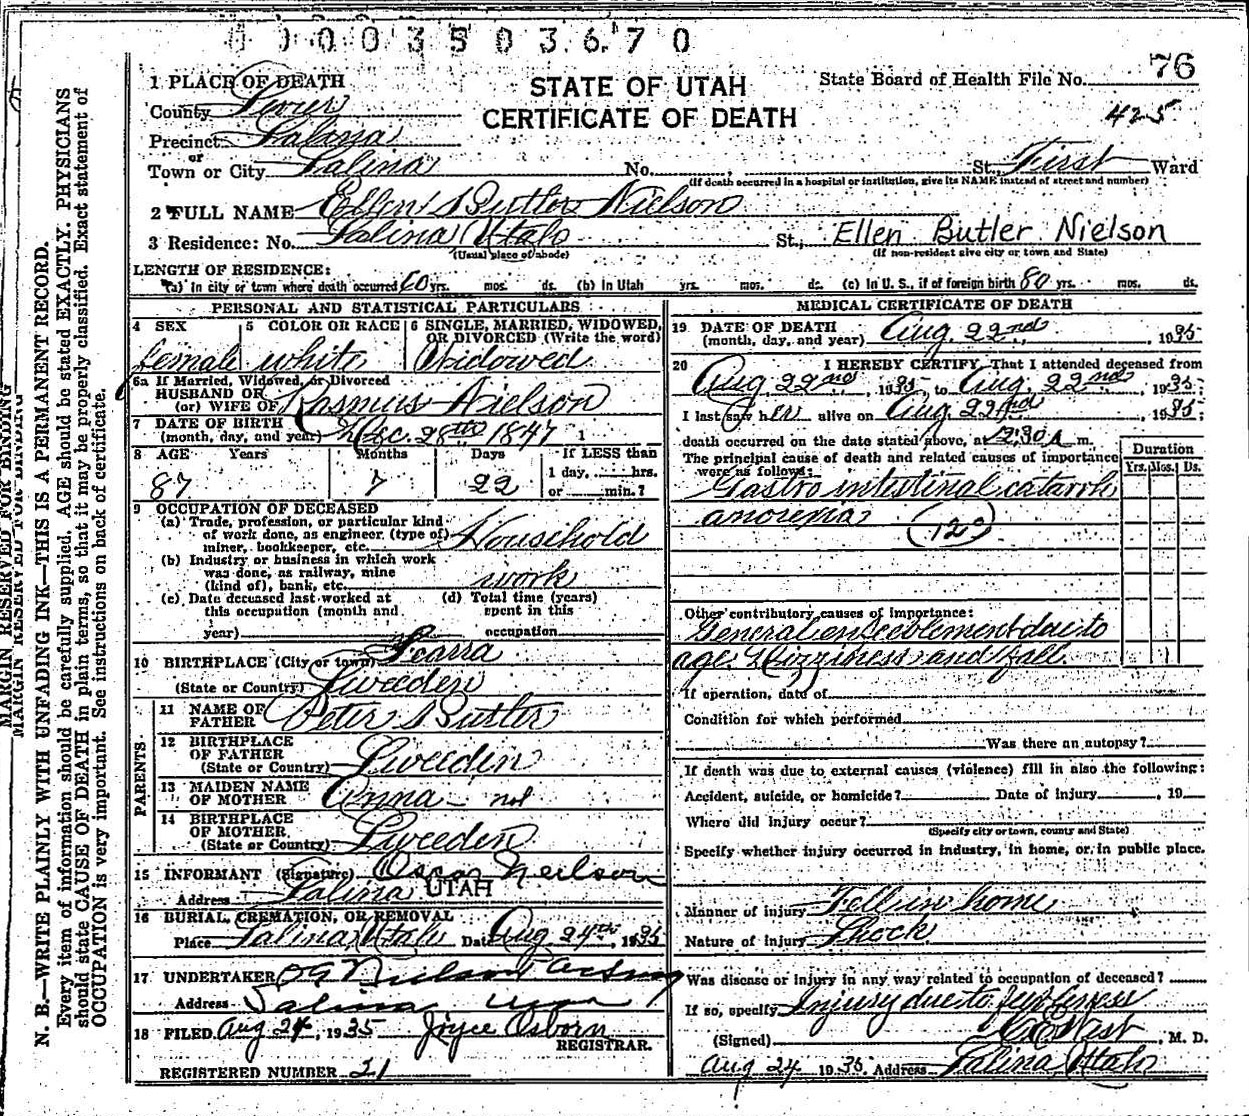 0 0 0 0 3 5 0 3 6 7 0
76
1 PLACE OF DEATH
STATE OF UTAH
CERTIFICATE OF DEATH
State Board of Health File No.
425
County Sevier
Precinct Salina
or
Town or City Salina No. St., First Ward
(If death occurred in a hospital or institution, give its NAME instead of street and number)
2 FULL NAME Ellen Butler Nielson
3 Residence: No. Salina Utah St., Ellen Butler Nielson
(Usual place of abode) (If non-resident give city or town and State)
LENGTH OF RESIDENCE:
(a) In city or town where death occurred 60 yrs. mos. ds. (b) In Utah yrs. mos. ds. (c) In U. S., if of foreign birth 80 yrs. mos. ds.
PERSONAL AND STATISTICAL PARTICULARS
4 SEX
female
5 COLOR OR RACE
white
6 SINGLE, MARRIED, WIDOWED,
OR DIVORCED (Write the word)
Widowed
6a If Married, Widowed, or Divorced
HUSBAND OF
(or) WIFE OF Rasmus Nielson
7 DATE OF BIRTH
(month, day, and year) Dec. 28th 1847 1
8 AGE Years Months Days If LESS than
1 day, hrs.
or min.?
87 7 22
9 OCCUPATION OF DECEASED
(a) Trade, profession, or particular kind
of work done, as engineer, (type of)
miner, bookkeeper, etc. Household
(b) Industry or business in which work
was done, as railway, mine
(kind of), bank, etc. work
(c) Date deceased last worked at
this occupation (month and
year)
(d) Total time (years)
spent in this
occupation
10 BIRTHPLACE (City or town) Scarra
(State or Country) Sweeden
PARENTS
11 NAME OF
FATHER Peter Butler
12 BIRTHPLACE
OF FATHER
(State or Country) Sweeden
13 MAIDEN NAME
OF MOTHER Anna
14 BIRTHPLACE
OF MOTHER
(State or Country) Sweeden
15 INFORMANT (Signature) Oscar Neilson
Address Salina UTAH
16 BURIAL, CREMATION, OR REMOVAL
Place Salina, Utah Date Aug. 24th, 1935
17 UNDERTAKER
Address Salina
18 FILED Aug 24, 1935 Joyce Osborn
REGISTRAR.
REGISTERED NUMBER 21
MEDICAL CERTIFICATE OF DEATH
19 DATE OF DEATH
(month, day, and year) Aug. 22nd, 1935
20 I HEREBY CERTIFY, That I attended deceased from
Aug 22nd, 1935, to Aug. 22nd, 1935;
I last saw her alive on Aug 22nd 1935;
death occurred on the date stated above, at 2:30 A m.
The principal cause of death and related causes of importance
were as follows:
Duration
Yrs. Mos. Ds.
Gastro intestinal catarrh
anorexia
Other contributory causes of importance:
General enfeeblement due to
age. Dizziness and fall.
If operation, date of
Condition for which performed
Was there an autopsy?
If death was due to external causes (violence) fill in also the following:
Accident, suicide, or homicide? Date of injury , 19
Where did injury occur?
(Specify city or town, county and State)
Specify whether injury occurred in industry, in home, or in public place.
Manner of injury Fell in home
Nature of injury Shock
Was disease or injury in any way related to occupation of deceased?
If so, specify Injury due to feebleness
(Signed) West, M. D.
Aug 24 1935. Address Salina, Utah
MARGIN RESERVED FOR BINDING
N. B.—WRITE PLAINLY WITH UNFADING INK—THIS IS A PERMANENT RECORD.
Every item of information should be carefully supplied. AGE should be stated EXACTLY. PHYSICIANS
should state CAUSE OF DEATH in plain terms, so that it may be properly classified. Exact statement of
OCCUPATION is very important. See instructions on back of certificate.